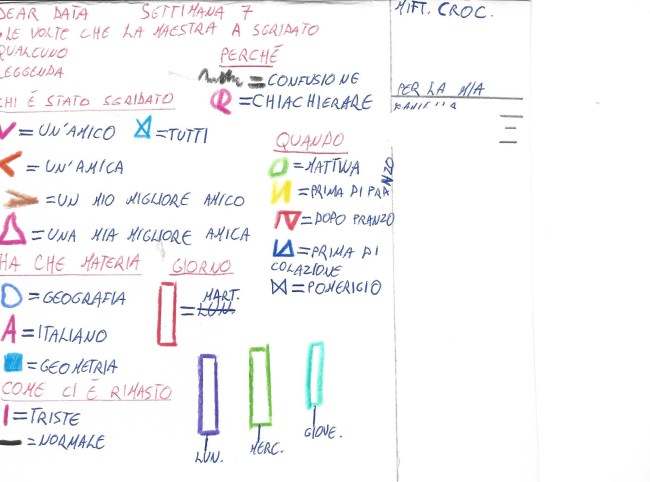 DEAR DATA SETTIMANA 7
LE VOLTE CHE LA MAESTRA A SGRIDATO
QUALCUNO
LEGGENDA
PERCHÉ
= CONFUSIONE
= CHIACHIERARE
CHI É STATO SGRIDATO
= UN'AMICO
= TUTTI
= UN'AMICA
= UN MIO MIGLIORE AMICO
= UNA MIA MIGLIORE AMICA
QUANDO
= MATTINA
= PRIMA DI PRANZO
= DOPO PRANZO
= PRIMA DI
COLAZIONE
= POMERIGIO
HA CHE MATERIA
= GEOGRAFIA
= ITALIANO
= GEOMETRIA
GIORNO
= MART.
LUN.
COME CI É RIMASTO
= TRISTE
= NORMALE
LUN.
MERC.
GIOVE.
MITT. CROC.
PER LA MIA